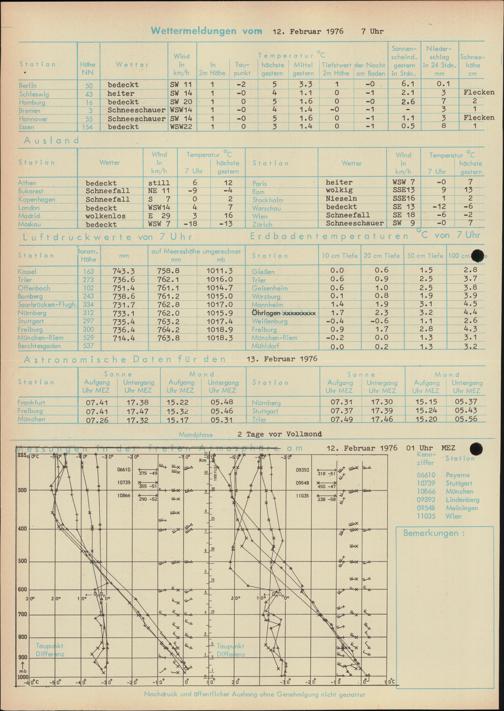 Wettermeldungen vom 12. Februar 1976 7 Uhr
Station Höhe NN Wetter Wind in km/h Temperatur °C Sonnenscheind. gestern in Stdn. Niederschlag in 24 Stdn. mm Schneehöhe cm
in 2m Höhe Taupunkt höchste gestern Mittel gestern Tiefstwert der Nacht 2m Höhe am Boden
Berlin 50 bedeckt SW 11 1 -2 5 3.3 1 -0 6.1 0.1
Schleswig 43 heiter SW 14 1 -0 4 1.1 0 -1 2.1 3 Flecken
Hamburg 16 bedeckt SW 20 1 0 5 1.6 0 -0 2.6 7 2
Bremen 3 Schneeschauer WSW14 1 -0 4 1.4 -0 -1 - 3 1
Hannover 55 Schneeschauer SW 14 1 -0 5 1.6 0 -1 1.1 3 Flecken
Essen 154 bedeckt WSW22 1 0 3 1.4 0 -1 0.5 8 1
Ausland
Station Wetter Wind in km/h Temperatur °C 7 Uhr höchste gestern Station Wetter Wind in km/h Temperatur °C 7 Uhr höchste gestern
Athen bedeckt still 6 12 Paris heiter WSW 7 -0 7
Bukarest Schneefall NE 11 -9 -4 Rom wolkig SSE13 9 13
Kopenhagen Schneefall S 7 0 2 Stockholm Nieseln SSE16 1 2
London bedeckt WSW14 4 7 Warschau bedeckt SE 13 -12 -6
Madrid wolkenlos E 29 3 16 Wien Schneefall SE 18 -6 -2
Moskau bedeckt WSW 7 -18 -13 Zürich Schneeschauer SW 9 -0 7
Luftdruckwerte von 7 Uhr Erdbodentemperaturen °C von 7 Uhr
Station Barom. Höhe mm auf Meereshöhe umgerechnet mm mb Station 10 cm Tiefe 20 cm Tiefe 50 cm Tiefe 100 cm
Kassel 163 743.3 758.8 1011.3 Gießen 0.0 0.6 1.5 2.8
Trier 273 736.6 762.1 1016.0 Trier 0.6 0.9 2.5 3.7
Offenbach 102 751.4 761.1 1014.7 Geisenheim 0.6 1.0 2.5 3.8
Bamberg 243 738.6 761.2 1015.0 Würzburg 0.1 0.8 1.9 3.9
Saarbrücken-Flugh. 324 731.7 762.8 1017.0 Mannheim 1.4 1.9 3.1 4.5
Nürnberg 312 733.1 762.0 1015.9 Öhringen xxxxxxxxx 1.7 2.3 3.2 4.4
Stuttgart 297 735.4 763.2 1017.4 Weißenburg -0.4 -0.6 1.1 2.6
Freiburg 300 736.4 764.2 1018.9 Freiburg 0.9 1.7 2.8 4.3
München-Riem 529 714.4 763.8 1018.3 München-Riem -0.2 0.0 1.3 3.1
Berchtesgaden 537 Mühldorf 0.0 0.2 1.3 3.2
Astronomische Daten für den 13. Februar 1976
Station Sonne Aufgang Uhr MEZ Untergang Uhr MEZ Mond Aufgang Uhr MEZ Untergang Uhr MEZ Station Sonne Aufgang Uhr MEZ Untergang Uhr MEZ Mond Aufgang Uhr MEZ Untergang Uhr MEZ
Frankfurt 07.41 17.38 15.22 05.48 Nürnberg 07.31 17.30 15.15 05.37
Freiburg 07.41 17.47 15.32 05.46 Stuttgart 07.37 17.39 15.24 05.43
München 07.26 17.32 15.17 05.31 Trier 07.49 17.46 15.20 05.56
Mondphase 2 Tage vor Vollmond
Messungen in der freien Atmosphäre am 12. Februar 1976 01 Uhr MEZ
Kennziffer Station
06610 Payerne
10739 Stuttgart
10866 München
09393 Lindenberg
09548 Meiningen
11035 Wien
Bemerkungen :
06610
10739
10866
09393
09548
11035
300
400
500
600
700
800
900
1000
Taupunkt Differenz
Taupunkt Differenz
Nachdruck und öffentlicher Aushang ohne Genehmigung nicht gestattet